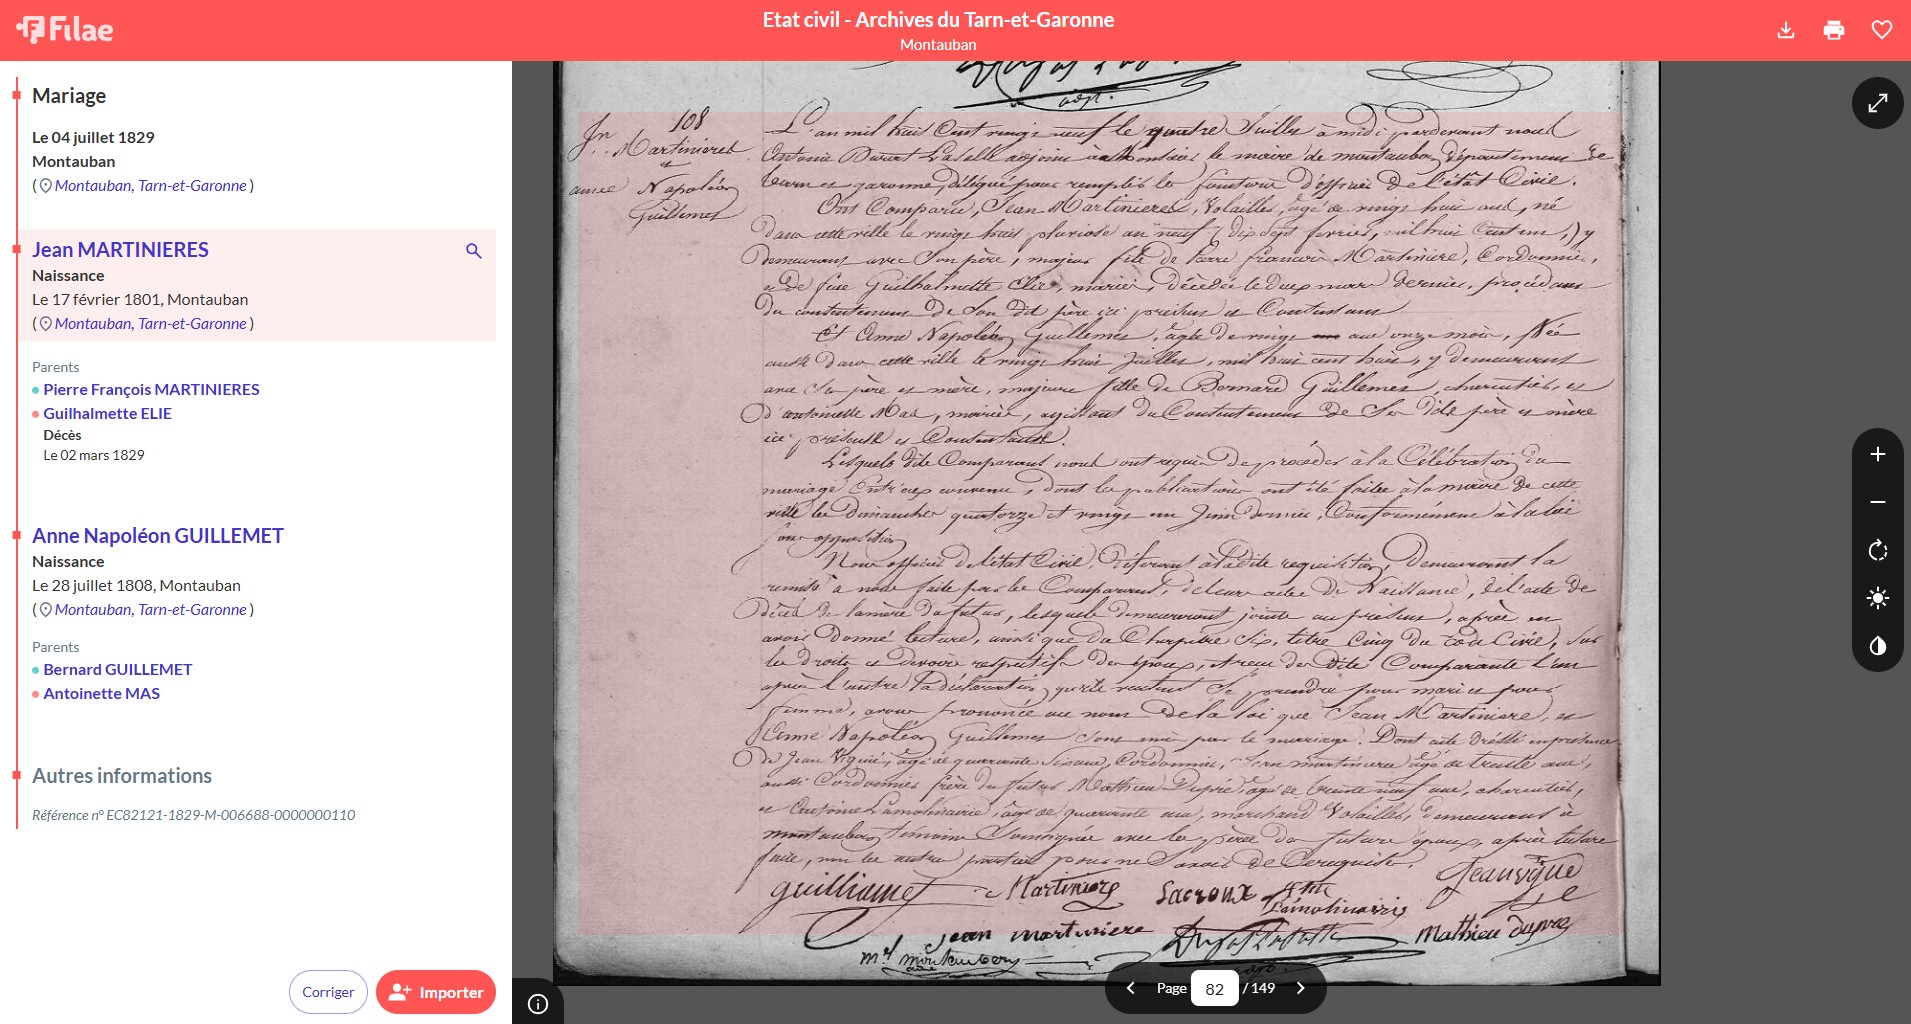 Filae
Etat civil - Archives du Tarn-et-Garonne
Montauban
Mariage
Le 04 juillet 1829
Montauban
( Montauban, Tarn-et-Garonne )
Jean MARTINIERES
Naissance
Le 17 février 1801, Montauban
( Montauban, Tarn-et-Garonne )
Parents
Pierre François MARTINIERES
Guilhalmette ELIE
Décès
Le 02 mars 1829
Anne Napoléon GUILLEMET
Naissance
Le 28 juillet 1808, Montauban
( Montauban, Tarn-et-Garonne )
Parents
Bernard GUILLEMET
Antoinette MAS
Autres informations
Référence n° EC82121-1829-M-006688-0000000110
Corriger
Importer
108
Jn. Martinieres
et
anne Napoléon
Guillemet
L'an mil huit Cent vingt neuf le quatre Juillet à midi pardevant nous
Antoine Lasalle adjoint le maire de montauban département de
tarn et garonne, délégué pour remplir les fonctions d'officier de l'état Civil.
Ont Comparu, Jean Martinieres, agé de vingt huit ans, né
Dans cette ville le vingt huit pluviose an neuf (dix sept fevrier, mil huit Cent un,) y
Demeurant avec Son père, majeur fils de Pierre françois Martiniere, Cordonnier,
et de feue Guilhalmette Elie, mariés, Décédée le deux mars dernier, procédant
Du consentement De Son dit père ici présent et Consentant
Et Anne Napoléon Guillemet, agée de vingt ans onze mois, Née
aussi Dans cette ville le vingt huit Juillet, mil huit cent huit, y demeurant
avec Ses père et mère, majeure fille de Bernard Guillemet, charcutier, et
D'antoinette Mas, mariés, agissant du Consentement de Ses dits père et mère
ici présents et Consentants.
Lesquels dits Comparants nous ont requis De procéder à la Célébration du
mariage Entr'eux convenu, dont les publications ont été faites à la mairie De cette
ville les Dimanches quatorze et vingt un Juin dernier, Conformément à la loi
sans opposition
Nous officier de l'état Civil, Déférant à la dite requisition, Demeurant la
remise à nous faite par les Comparants, de leurs actes De Naissance, de l'acte de
décès De la mère du futur, lesquels demeureront joints au présent, après en
avoir Donné lecture, ainsi que du Chapitre Six, titre Cinq Du code Civil, Sur
les droits et devoirs respectifs Des époux, et reçu des dits Comparants l'un
après l'autre la déclaration qu'ils veulent Se prendre pour mari et pour
femme, avons prononcé au nom de la loi que Jean Martiniere, et
Anne Napoléon Guillemet Sont unis par le mariage. Dont acte dressé en présence
De Jean Viguié, agé de quarante Six ans, Cordonnier, Jean martiniere agé de trente ans,
aussi Cordonnier frère du futur Mathieu Dupré, agé de trente neuf ans, charcutier,
et Antoine Lamolinairie, agé de quarante ans, marchand Volailler, demeurant à
montauban, temoins Soussignés avec les pères des futurs époux, après lecture
faite, non les autres parties pour ne Savoir de Ce requises.
guilliamet Martiniere Lacroux Atne Lamolinairie Jean vigue
jean martiniere Mathieu dupre
Page 82 / 149